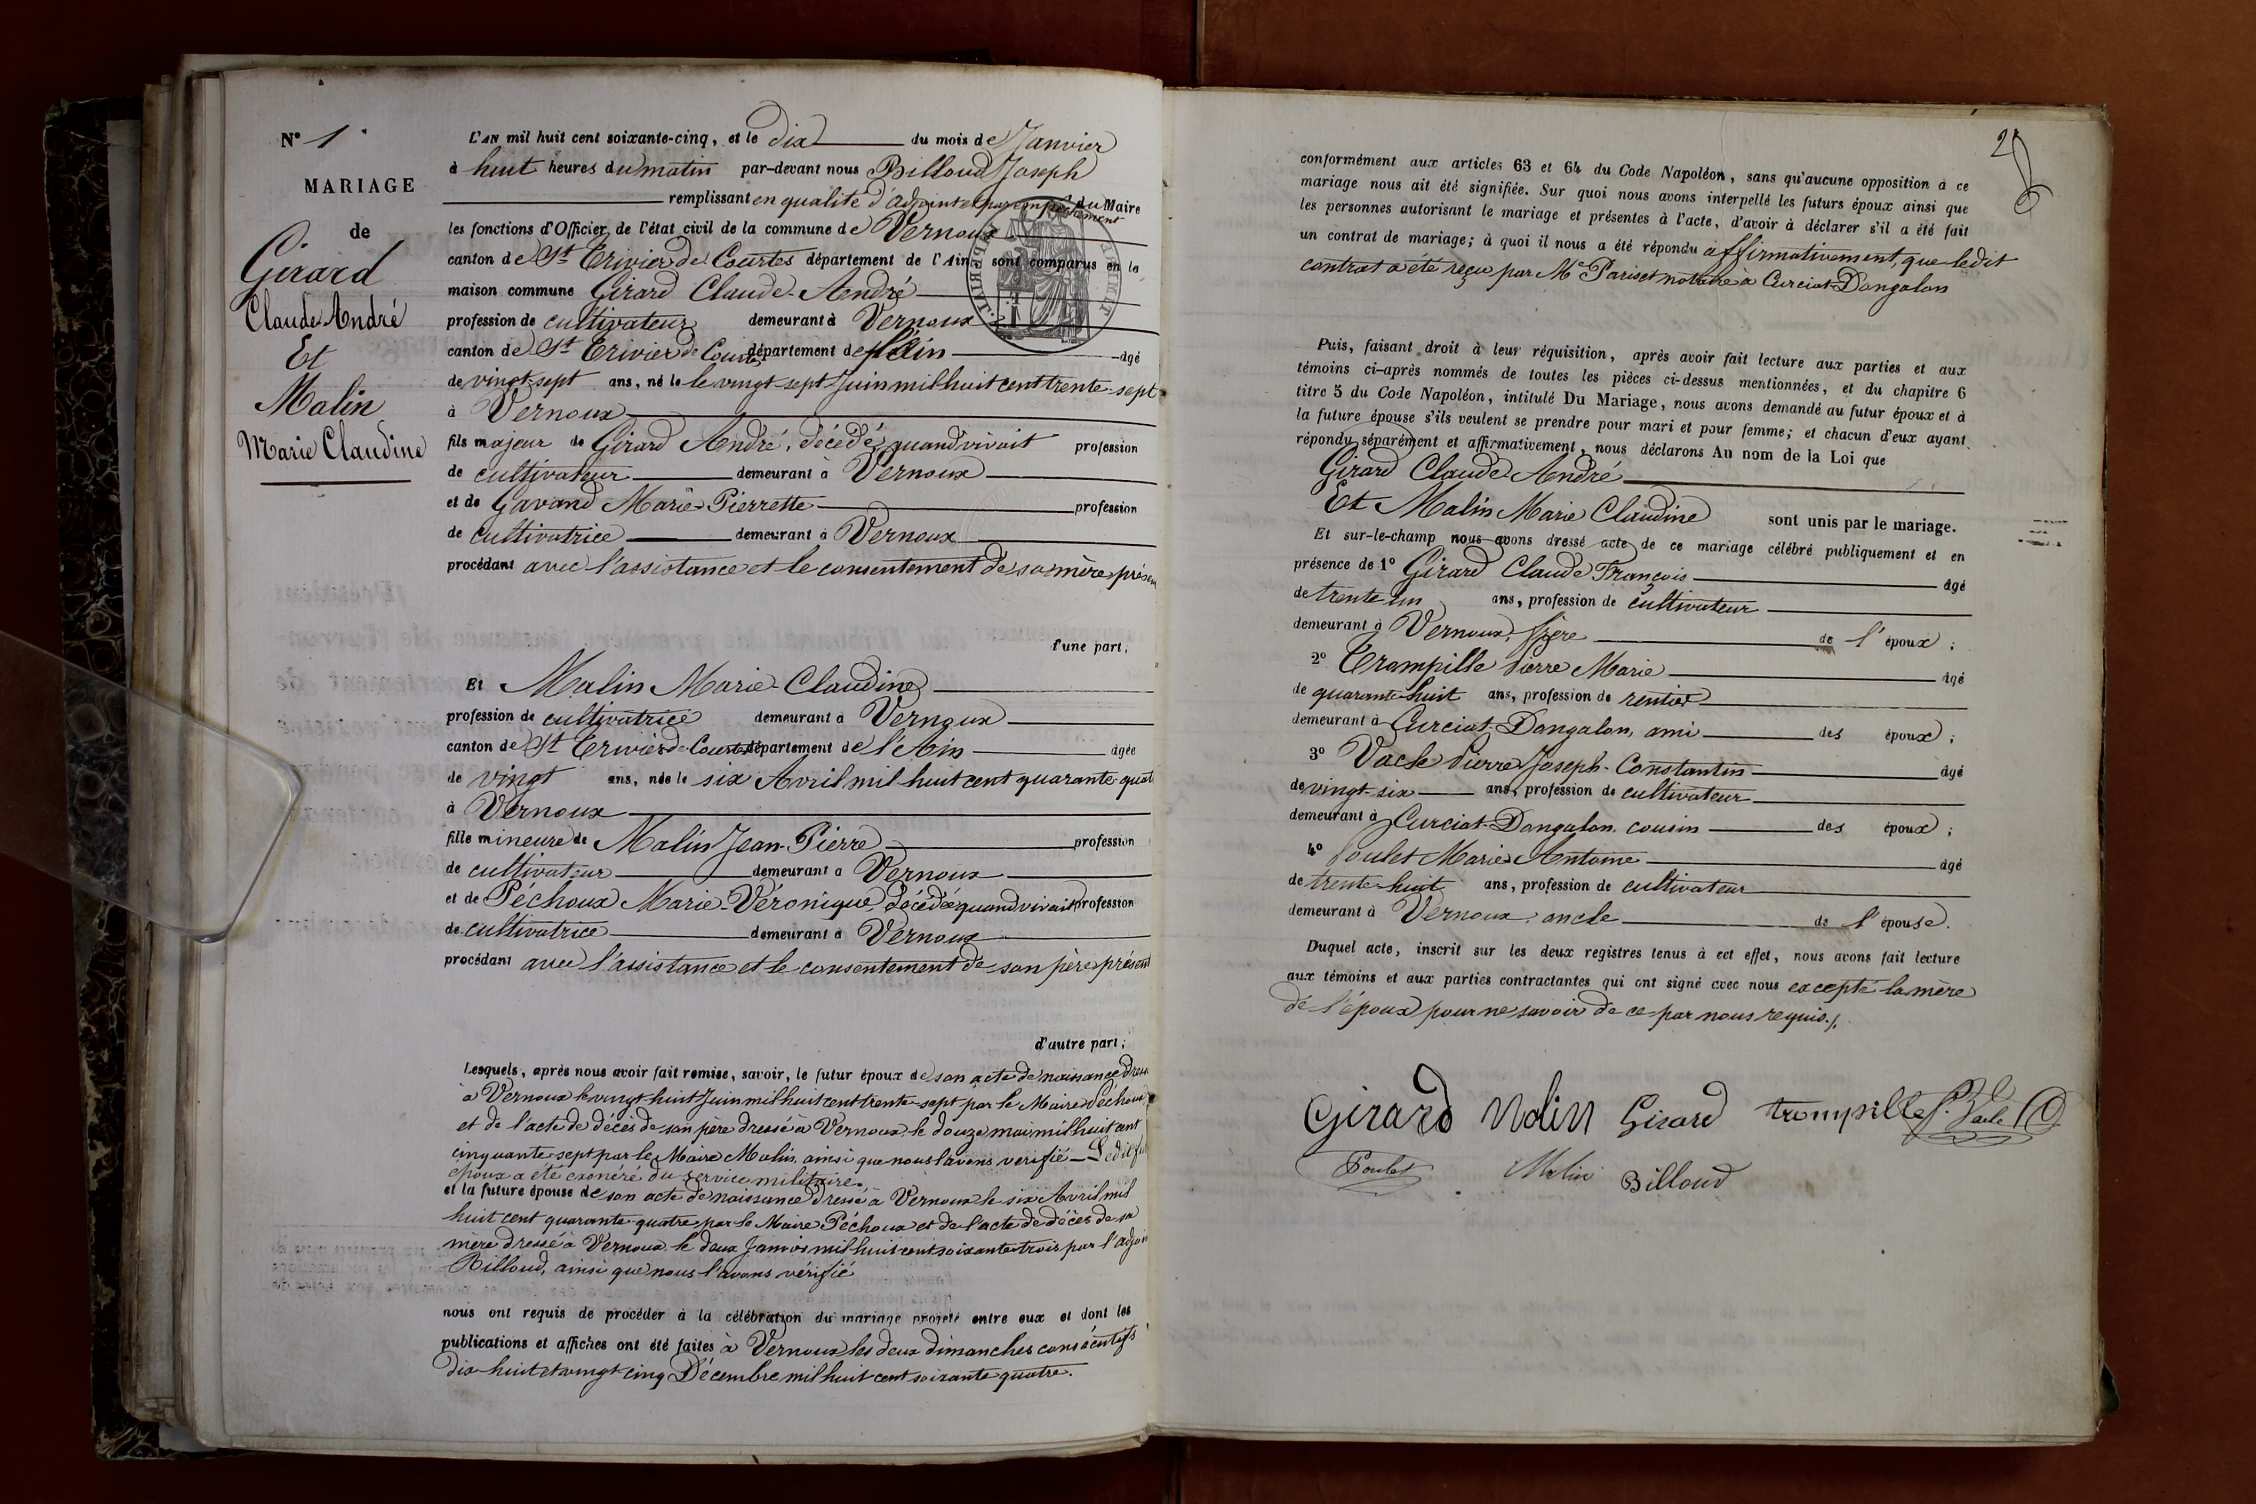 N° 1
MARIAGE
de
Girard
Claude André
Et
Malin
Marie Claudine
L'AN mil huit cent soixante-cinq, et le dix du mois de Janvier
à huit heures du matin par-devant nous Billoud Joseph
remplissant en qualité d'adjoint par empêchement du Maire
les fonctions d'Officier de l'état civil de la commune de Vernoux
canton de St Trivier de Courtes département de l'Ain sont comparus en la
maison commune Girard Claude-André
profession de cultivateur demeurant à Vernoux
canton de St Trivier de Courtes département de l'Ain âgé
de vingt-sept ans, né le le vingt-sept Juin mil huit cent trente-sept
à Vernoux
fils majeur de Girard André, décédé, quand vivait profession
de cultivateur demeurant à Vernoux
et de Gavand Marie-Pierrette profession
de cultivatrice demeurant à Vernoux
procédant avec l'assistance et le consentement de sa mère présen
d'une part;
Et Malin Marie-Claudine
profession de cultivatrice demeurant à Vernoux
canton de St Trivier de Courtes département de l'Ain âgée
de vingt ans, née le six Avril mil huit cent quarante-quat
à Vernoux
fille mineure de Malin Jean-Pierre profession
de cultivateur demeurant à Vernoux
et de Péchoux Marie-Véronique, décédée quand vivait profession
de cultivatrice demeurant à Vernoux
procédant avec l'assistance et le consentement de son père présent
d'autre part;
Lesquels, après nous avoir fait remise, savoir, le futur époux de son acte de naissance dress
à Vernoux le vingt huit Juin mil huit cent trente-sept par le Maire Péchoux
et de l'acte de décès de son père dressé à Vernoux le douze mai mil huit cent
cinquante-sept par le Maire Malin, ainsi que nous l'avons vérifié – Ledit fut
époux a été exonéré du service militaire.
et la future épouse de son acte de naissance dressé à Vernoux le six Avril mil
huit cent quarante-quatre par le Maire Péchoux et de l'acte de décès de sa
mère dressé à Vernoux le deux Janvier mil huit cent soixante trois par l'adjoi
Billoud, ainsi que nous l'avons vérifié
nous ont requis de procéder à la célébration du mariage projeté entre eux et dont les
publications et affiches ont été faites à Vernoux les deux dimanches consécutifs
dix-huit et vingt cinq Décembre mil huit cent soixante quatre.
conformément aux articles 63 et 64 du Code Napoléon, sans qu'aucune opposition à ce
mariage nous ait été signifiée. Sur quoi nous avons interpellé les futurs époux ainsi que
les personnes autorisant le mariage et présentes à l'acte, d'avoir à déclarer s'il a été fait
un contrat de mariage; à quoi il nous a été répondu affirmativement, que ledit
contrat a été reçu par Me Pariset notaire à Curciat-Dongalon
Puis, faisant droit à leur réquisition, après avoir fait lecture aux parties et aux
témoins ci-après nommés de toutes les pièces ci-dessus mentionnées, et du chapitre 6
titre 5 du Code Napoléon, intitulé Du Mariage, nous avons demandé au futur époux et à
la future épouse s'ils veulent se prendre pour mari et pour femme; et chacun d'eux ayant
répondu séparément et affirmativement, nous déclarons Au nom de la Loi que
Girard Claude André
Et Malin Marie Claudine sont unis par le mariage.
Et sur-le-champ nous avons dressé acte de ce mariage célébré publiquement et en
présence de 1° Girard Claude François âgé
de trente-un ans, profession de cultivateur
demeurant à Vernoux, frère de l'époux;
2° Trompille Pierre Marie âgé
de quarante-huit ans, profession de rentier
demeurant à Curciat-Dongalon, ami des époux;
3° Vacle Pierre Joseph-Constantin âgé
de vingt-six ans, profession de cultivateur
demeurant à Curciat-Dongalon, cousin des époux;
4° Poulet Marie-Antoine âgé
de trente-huit ans, profession de cultivateur
demeurant à Vernoux, oncle de l'épouse.
Duquel acte, inscrit sur les deux registres tenus à cet effet, nous avons fait lecture
aux témoins et aux parties contractantes qui ont signé avec nous excepté la mère
de l'époux pour ne savoir de ce par nous requis./.
Girard Malin Girard trompille P. Vacle
Poulet Malin Billoud